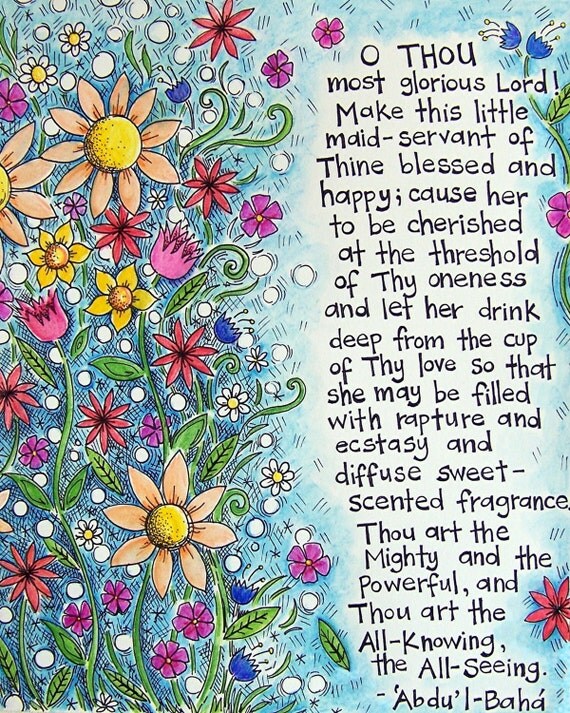 O THOU
most glorious Lord!
Make this little
maid-servant of
Thine blessed and
happy; cause her
to be cherished
at the threshold
of Thy oneness
and let her drink
deep from the cup
of Thy love so that
she may be filled
with rapture and
ecstasy and
diffuse sweet-
scented fragrance.
Thou art the
Mighty and the
Powerful, and
Thou art the
All-Knowing,
the All-Seeing.
- 'Abdu'l-Bahá